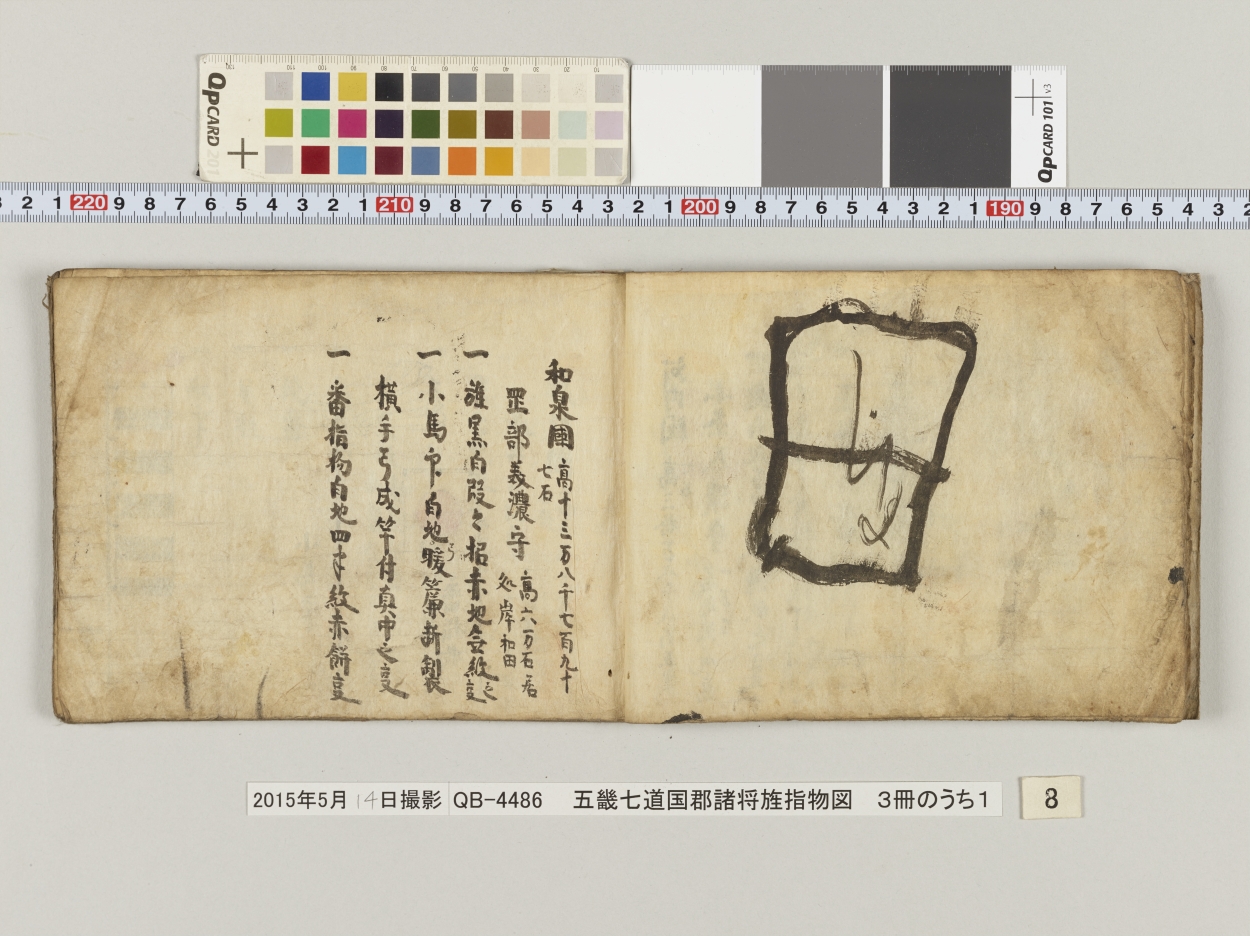 QPCARD 201
QPCARD 101 v3
3 2 1 220 9 8 7 6 5 4 3 2 1 210 9 8 7 6 5 4 3 2 1 200 9 8 7 6 5 4 3 2 1 190 9 8 7 6 5 4 3 2
和泉國 高十三万八千七百九十
七石
罡部義濃守 高六万石居
処岸和田
一 旌黒白段々招赤地無紋之㕝
一 小馬印自地暖簾新製
横手弓成竿付真中之㕝
一 番指物白地四半紋赤餅㕝
2015年5月14日撮影 QB-4486 五畿七道国郡諸将旌指物図 3冊のうち1
8